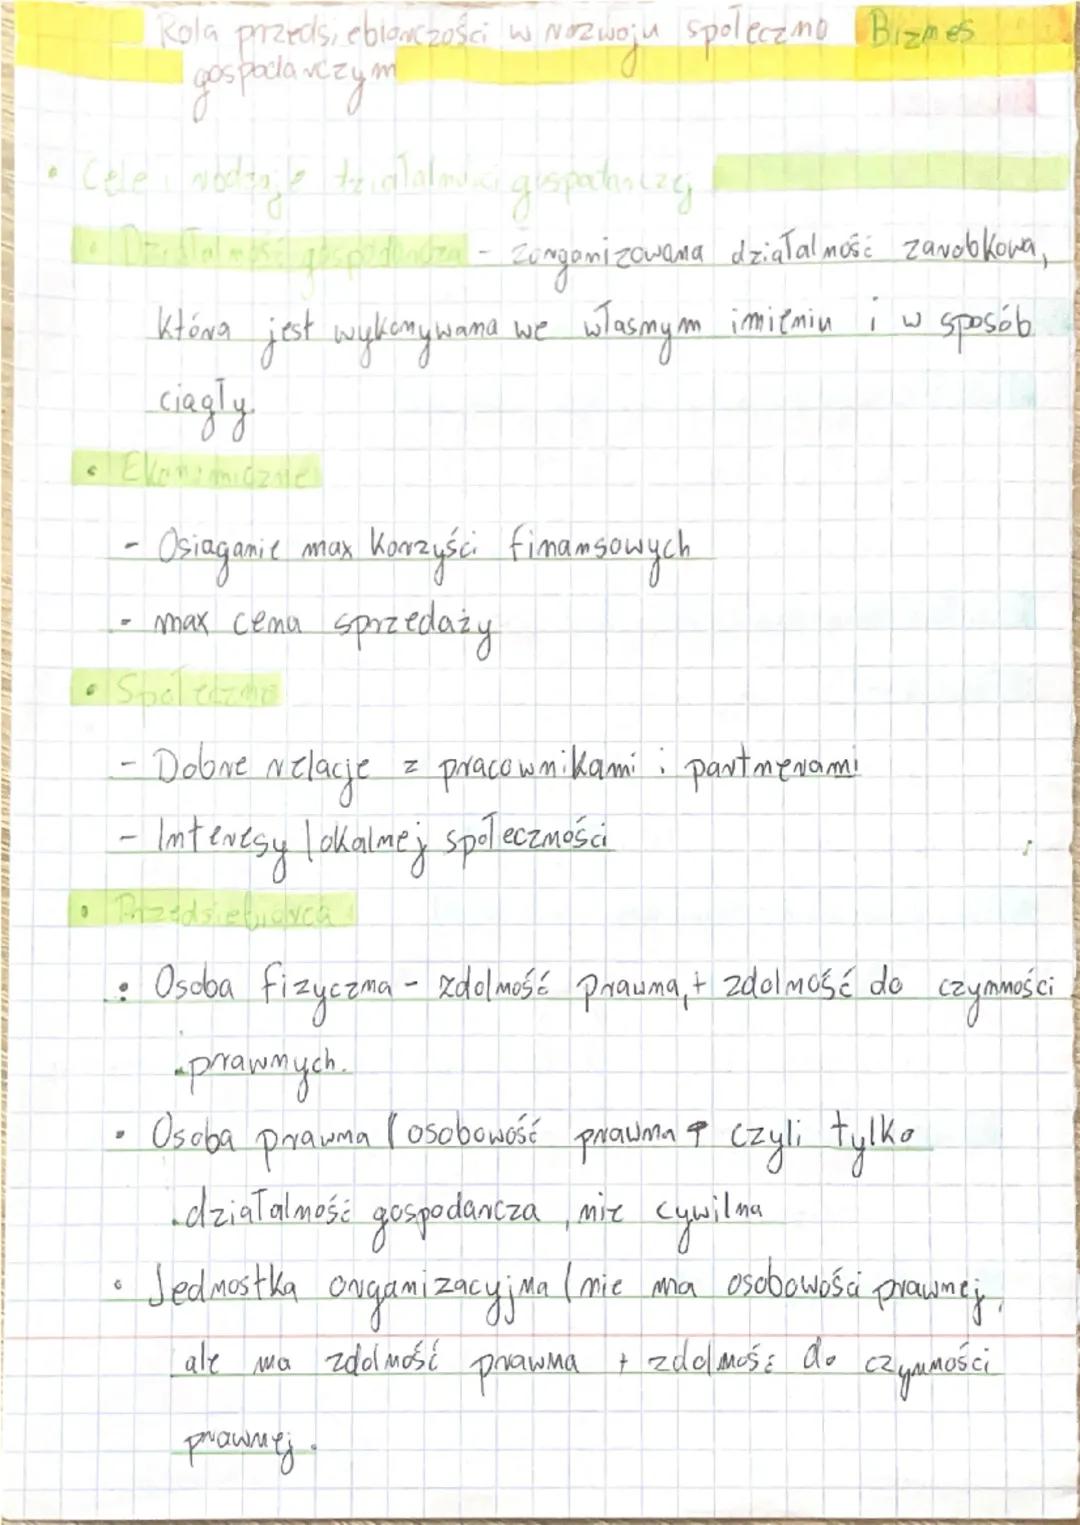 Rola przedsiębiorczości w rozwoju społeczno Biznes
gospodarczym
• Cele i rodzaje działalności gospodarczej
• Działalność gospodarcza - zorganizowana działalność zarobkowa,
która jest wykonywana we własnym imieniu i w sposób
ciągły.
• Ekonomiczne
- Osiąganie max korzyści finansowych
- max cena sprzedaży
• Społeczne
- Dobre relacje z pracownikami i partnerami
- Interesy lokalnej społeczności
• Przedsiębiorca
• Osoba fizyczna - zdolność prawna, + zdolność do czynności
prawnych.
• Osoba prawna (osobowość prawna czyli tylko
działalność gospodarcza, nie cywilna
• Jednostka organizacyjna (nie ma osobowości prawnej,
ale ma zdolność prawna + zdolność do czynności
prawnej.